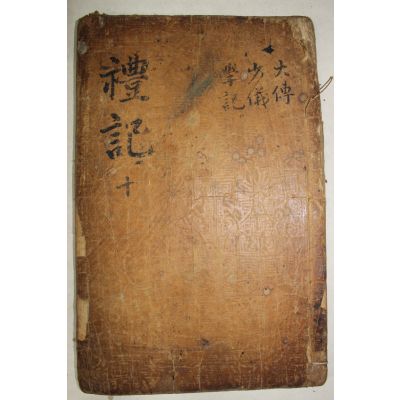 禮記 十
大傳
少儀
學記